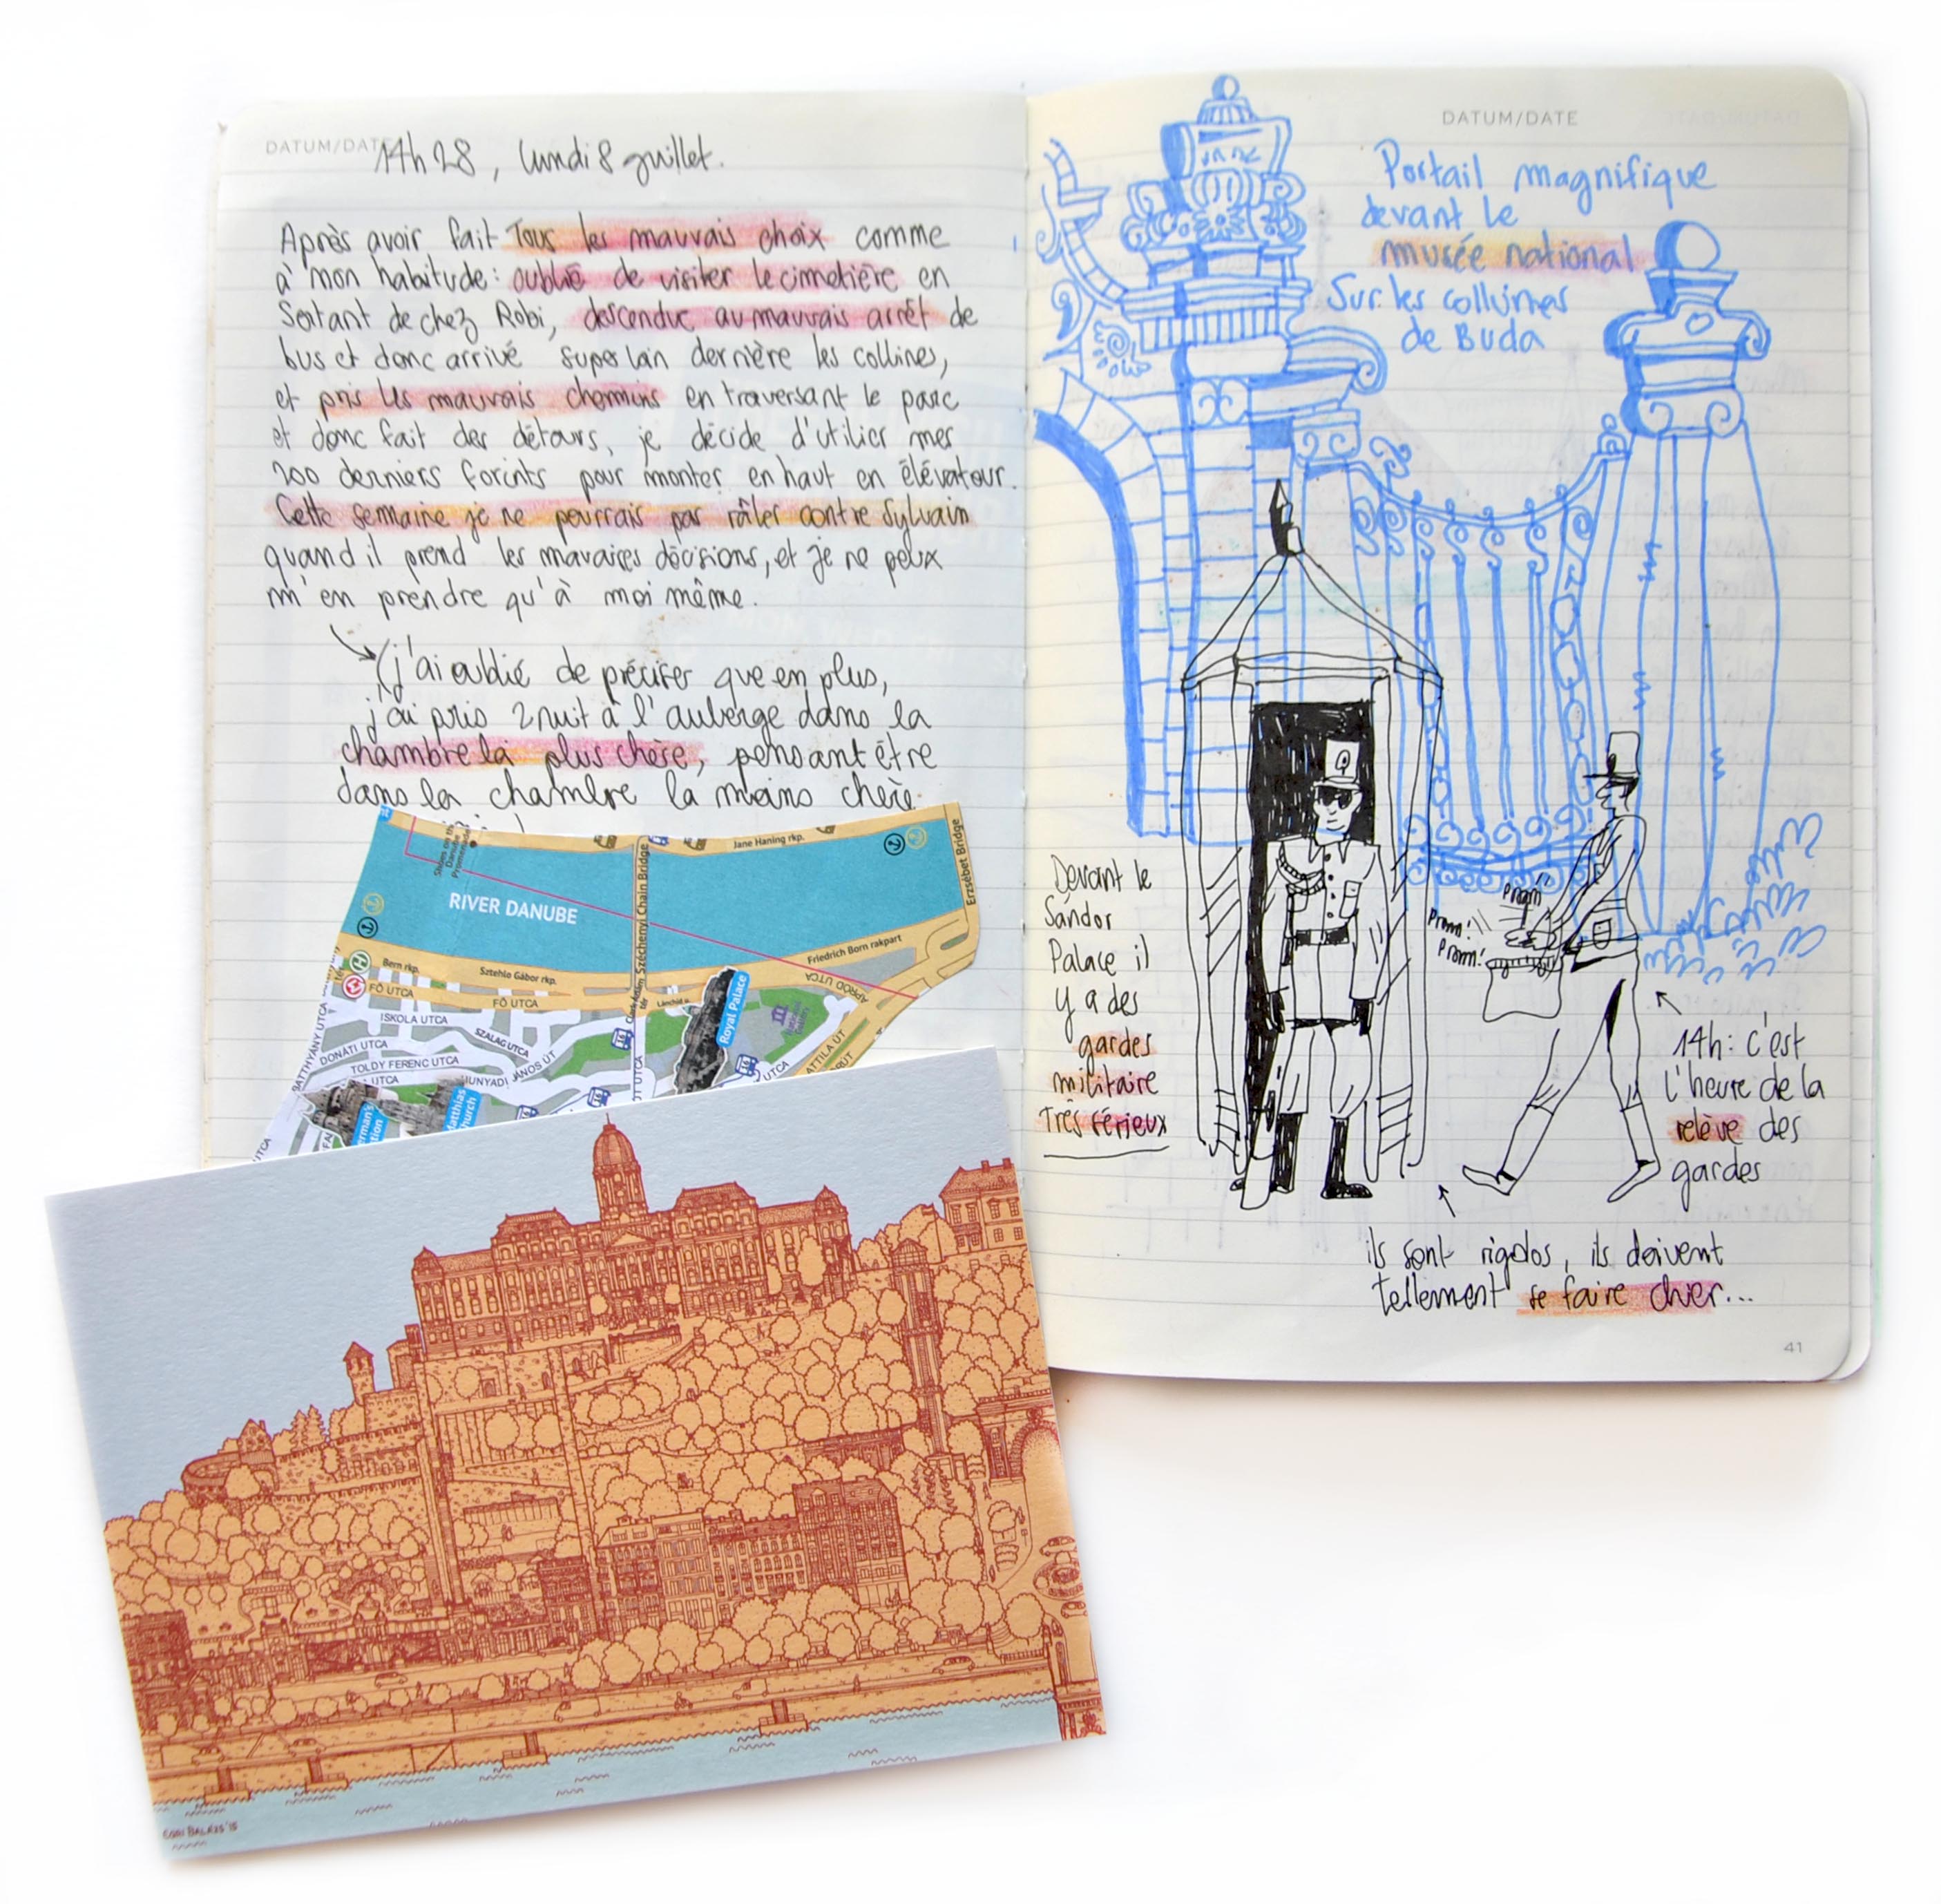 DATUM/DATE
14h28, lundi 8 juillet.
Après avoir fait Tous les mauvais choix comme
à mon habitude: oublié de visiter le cimetière en
Sortant de chez Robi, descendue au mauvais arrêt de
bus et donc arrivé super loin derrière les collines,
et pris les mauvais chemins en traversant le parc
et donc fait des détours, je décide d'utilier mes
200 derniers forints pour monter en haut en élévateur.
Cette semaine je ne pourrais pas râler contre Sylvain
quand il prend les mavaises décisions, et je ne peux
m'en prendre qu'à moi même.
(j'ai oublié de préciser que en plus,
j'ai pris 2 nuit à l'auberge dans la
chambre la plus chère, pensant être
dans la chambre la moins chère
Jane Haining rkp.
Erzsébet Bridge
Shoes on the
Danube
Promenade
RIVER DANUBE
Széchenyi Chain Bridge
Friedrich Born rakpart
Bem rkp.
Sztehlo Gábor rkp.
FŐ UTCA
FŐ UTCA
APRÓD UTCA
ISKOLA UTCA
SZALAG UTCA
Lánchíd u.
Royal Palace
DONÁTI UTCA
BATTHYÁNY UTCA
TOLDY FERENC UTCA
HUNYADI JÁNOS ÚT
ATTILA ÚT
UTCA
UTCA
16
16
16
Matthias
Church
UTCA
DATUM/DATE
Portail magnifique
devant le
musée national
Sur les collines
de Buda
Devant le
Sándor
Palace il
y a des
gardes
militaire
Très sérieux
Prom!
Prom!
prom
14h: c'est
l'heure de la
relève des
gardes
ils sont rigolos, ils doivent
tellement se faire chier...
41